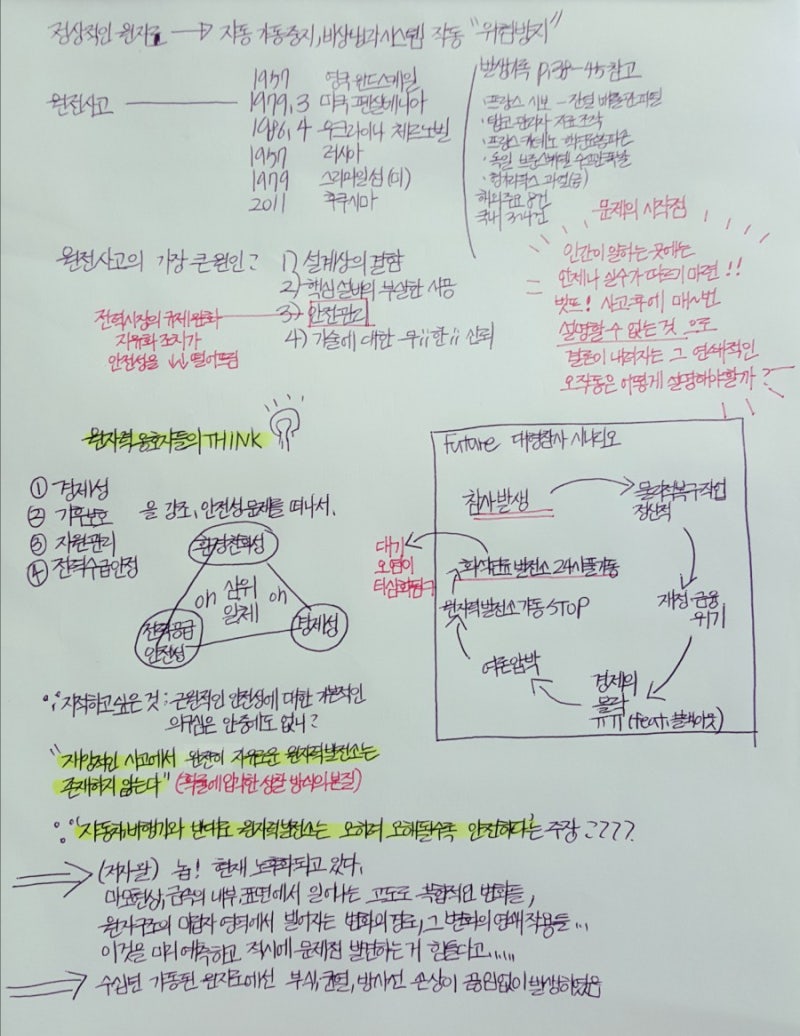 정상적인 원자로 → 자동 가동중지, 비상냉각시스템 작동 "위험방지"
원전사고
1957 영국 윈드스케일
1979, 3 미국 펜실베니아
1986, 4 우크라이나 체르노빌
1957 러시아
1979 스리마일섬 (미)
2011 후쿠시마
발생기록 p.38-45 참고
· 프랑스 시보 - 잔열 배출관
· 탐고 관리자 자료 조작
· 프랑스
· 독일 브룬스뷔텔 수소관폭발
· 헝가리 팍스
해외주요
국내
문제의 시작점
인간이 일하는 곳에는
언제나 실수가 따르기 마련!!
벗뜨! 사고후에 매~번
설명할 수 없는 것 으로
결론이 내려지는 그 연쇄적인
오작동은 어떻게 설명해야할까?
원전사고의 가장 큰 원인?
1) 설계상의 결함
2) 핵심설비의 부실한 사용
3) 안전관리
4) 기술에 대한 무¡¡한¡¡ 신뢰
전력시장의 규제완화
자유화 조치가
안전성을 ↓↓ 떨어뜨림
원자력 옹호자들의 THINK
① 경제성
② 기후보호
③ 자원관리
④ 전력수급안정
을 강조, 안전성 문제를 떠나서.
환경친화성
삼위
일체
전력공급
안전성
경제성
Future 대형참사 시나리오
참사발생
물리적복구작업
정신적
재정·금융
위기
경제의
몰락
ㅠㅠ (feat. 블랙아웃)
여론압박
원자력발전소 가동 STOP
화석연료 발전소 24시 풀가동
대기
오염이
더심화될구
지적하고싶은 것 : 근원적인 안전성에 대한 기본적인
의구심은 안중에도 없니?
"재앙적인 사고에서 완전히 자유로운 원자력발전소는
존재하지 않는다" (확률에 입각한 성찰 방식의 본질)
자동차, 비행기와 반대로 원자력발전소는 오히려 오래될수록 안전하다는 주장 ????
⇒ (저자 왈) 놉! 현재 노후화되고 있다.
마모현상, 금속의 내부, 표면에서 일어나는 고도로 복합적인 변화들,
원자구조의 미립자 영역에서 벌어지는 변화의 경로, 그 변화의 연쇄 작용들...
이것을 미리 예측하고 적시에 문제점 발견하는 거 힘들다고.....
⇒ 수십년 가동된 원자로에선 부식, 균열, 방사선 손상이 끊임없이 발생하였음